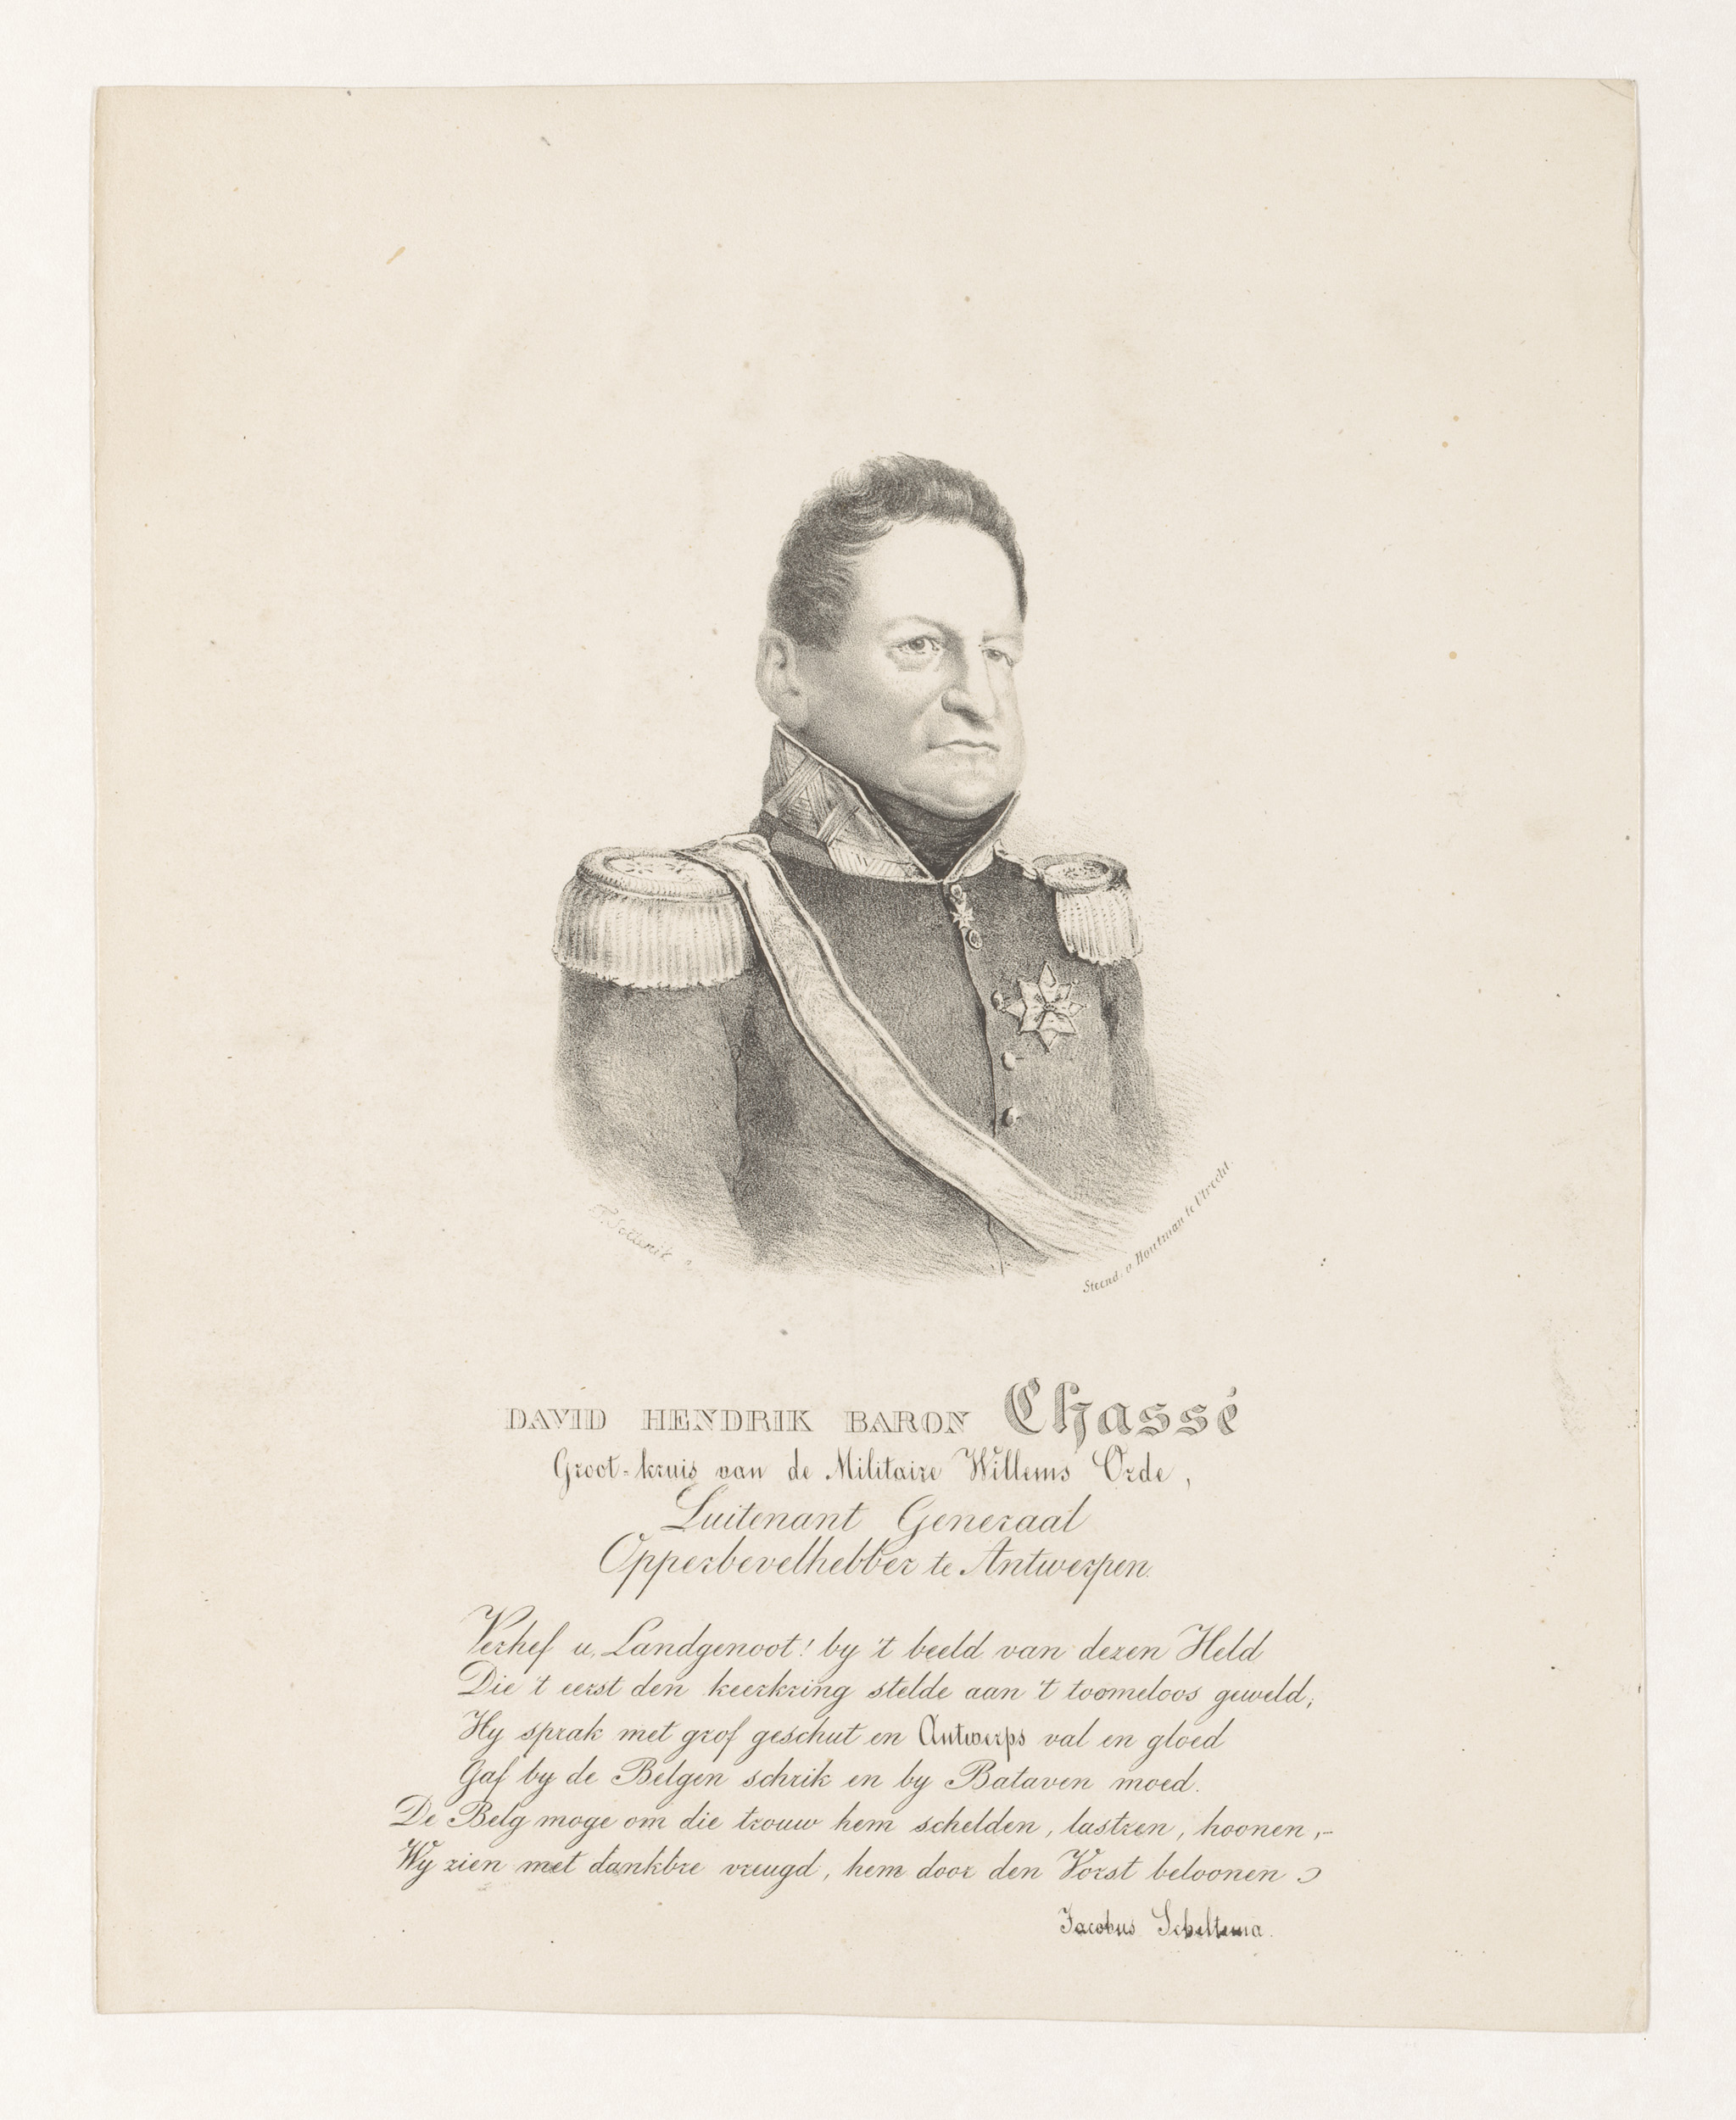 Steend. v. Houtman te Utrecht.
DAVID HENDRIK BARON Chassé
Groot-kruis van de Militaire Willems Orde,
Luitenant Generaal
Opperbevelhebber te Antwerpen.
Verhef u, Landgenoot! by 't beeld van dezen Held
Die 't eerst den keerkring stelde aan 't toomeloos geweld;
Hy sprak met grof geschut en Antwerps val en gloed
Gaf by de Belgen schrik en by Bataven moed.
De Belg moge om die trouw hem schelden, lastren, hoonen,-
Wy zien met dankbre vreugd, hem door den Vorst beloonen
Jacobus Scheltema.